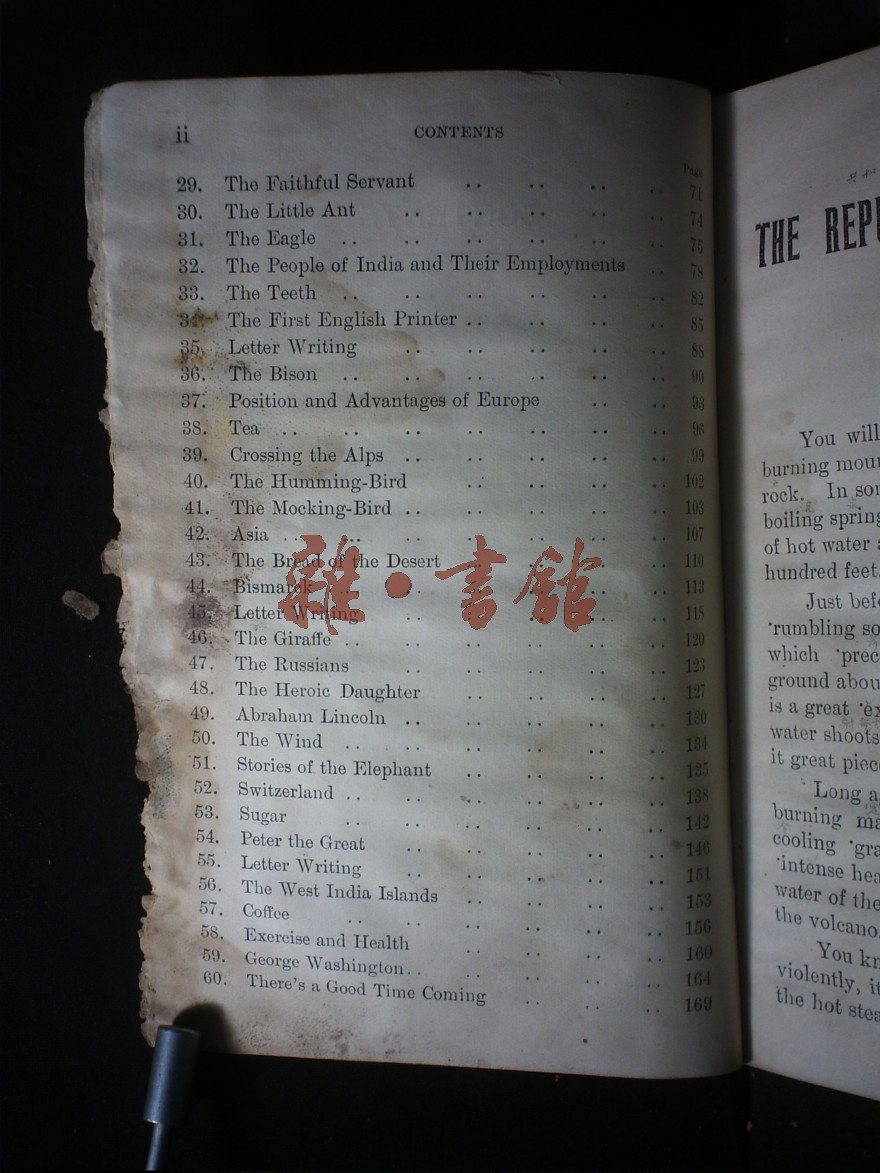 ii CONTENTS
Page
29. The Faithful Servant .. .. .. .. 71
30. The Little Ant .. .. .. .. .. 74
31. The Eagle .. .. .. .. .. .. 75
32. The People of India and Their Employments .. 78
33. The Teeth .. .. .. .. .. .. 82
34. The First English Printer .. .. .. .. 85
35. Letter Writing .. .. .. .. .. 88
36. The Bison .. .. .. .. .. .. 90
37. Position and Advantages of Europe .. .. 93
38. Tea .. .. .. .. .. .. .. 96
39. Crossing the Alps .. .. .. .. .. 99
40. The Humming-Bird .. .. .. .. 102
41. The Mocking-Bird .. .. .. .. .. 103
42. Asia .. .. .. .. .. .. .. 107
43. The Bread of the Desert .. .. .. .. 110
44. Bismarck .. .. .. .. .. .. 113
45. Letter Writing .. .. .. .. .. 118
46. The Giraffe .. .. .. .. .. .. 120
47. The Russians .. .. .. .. .. 123
48. The Heroic Daughter .. .. .. .. 127
49. Abraham Lincoln .. .. .. .. .. 130
50. The Wind .. .. .. .. .. .. 134
51. Stories of the Elephant .. .. .. .. 135
52. Switzerland .. .. .. .. .. .. 138
53. Sugar .. .. .. .. .. .. 142
54. Peter the Great .. .. .. .. .. 146
55. Letter Writing .. .. .. .. .. 151
56. The West India Islands .. .. .. .. 153
57. Coffee .. .. .. .. .. .. 156
58. Exercise and Health .. .. .. .. 160
59. George Washington .. .. .. .. .. 164
60. There's a Good Time Coming .. .. .. 169
雜·書館
THE REPU
You will
burning moun
rock. In som
boiling spring
of hot water a
hundred feet.
Just befo
rumbling so
which prec
ground abou
is a great ex
water shoots
it great piece
Long a
burning ma
cooling gra
intense hea
water of the
the volcano.
You kn
violently, it
the hot stea